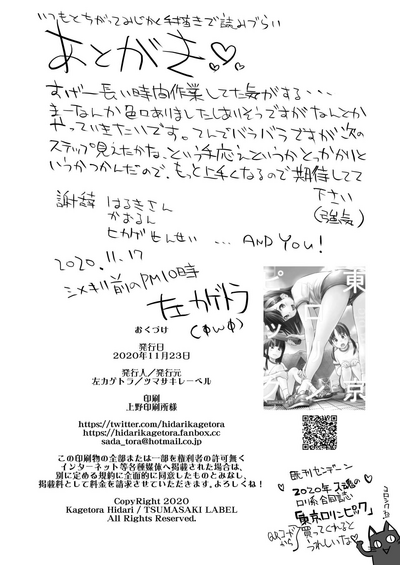 いつもとちがってみじかく手描きで読みづらい
あとがき♡
すげー長い時間作業してた気がする・・・
まーなんか色々ありましたしありそうですがなんとか
やっていきたいです。てんでバラバラですが次の
ステップ見えたかな、という手応えというかとっかかりと
いうかつかんだので、もっと上手くなるので期待してて
下さい
(強気)
謝辞 はるきさん
かおるん
ヒカゲせんせい ... AND YOU!
2020.11.17
シメキリ前のPM10時
左カゲトラ
(ゆんゆ)
おくづけ
発行日
2020年11月23日
発行人／発行元
左カゲトラ／ツマサキレーベル
印刷
上野印刷所様
https://twitter.com/hidarikagetora
https://hidarikagetora.fanbox.cc
sada_tora@hotmail.co.jp
この印刷物の全部または一部を権利者の許可無く
インターネット等各種媒体へ掲載された場合は、
別に定める規約に全面的に同意したものとみなし、
掲載料として料金を請求させていただきます。よろしくね！
CopyRight 2020
Kagetora Hidari / TSUMASAKI LABEL
All Rights Reserved.
東
京
既刊センデーン
2020年ス魂の
ロリ系合同誌
「東京ロリンピック」
買ってくれると
うれしいな